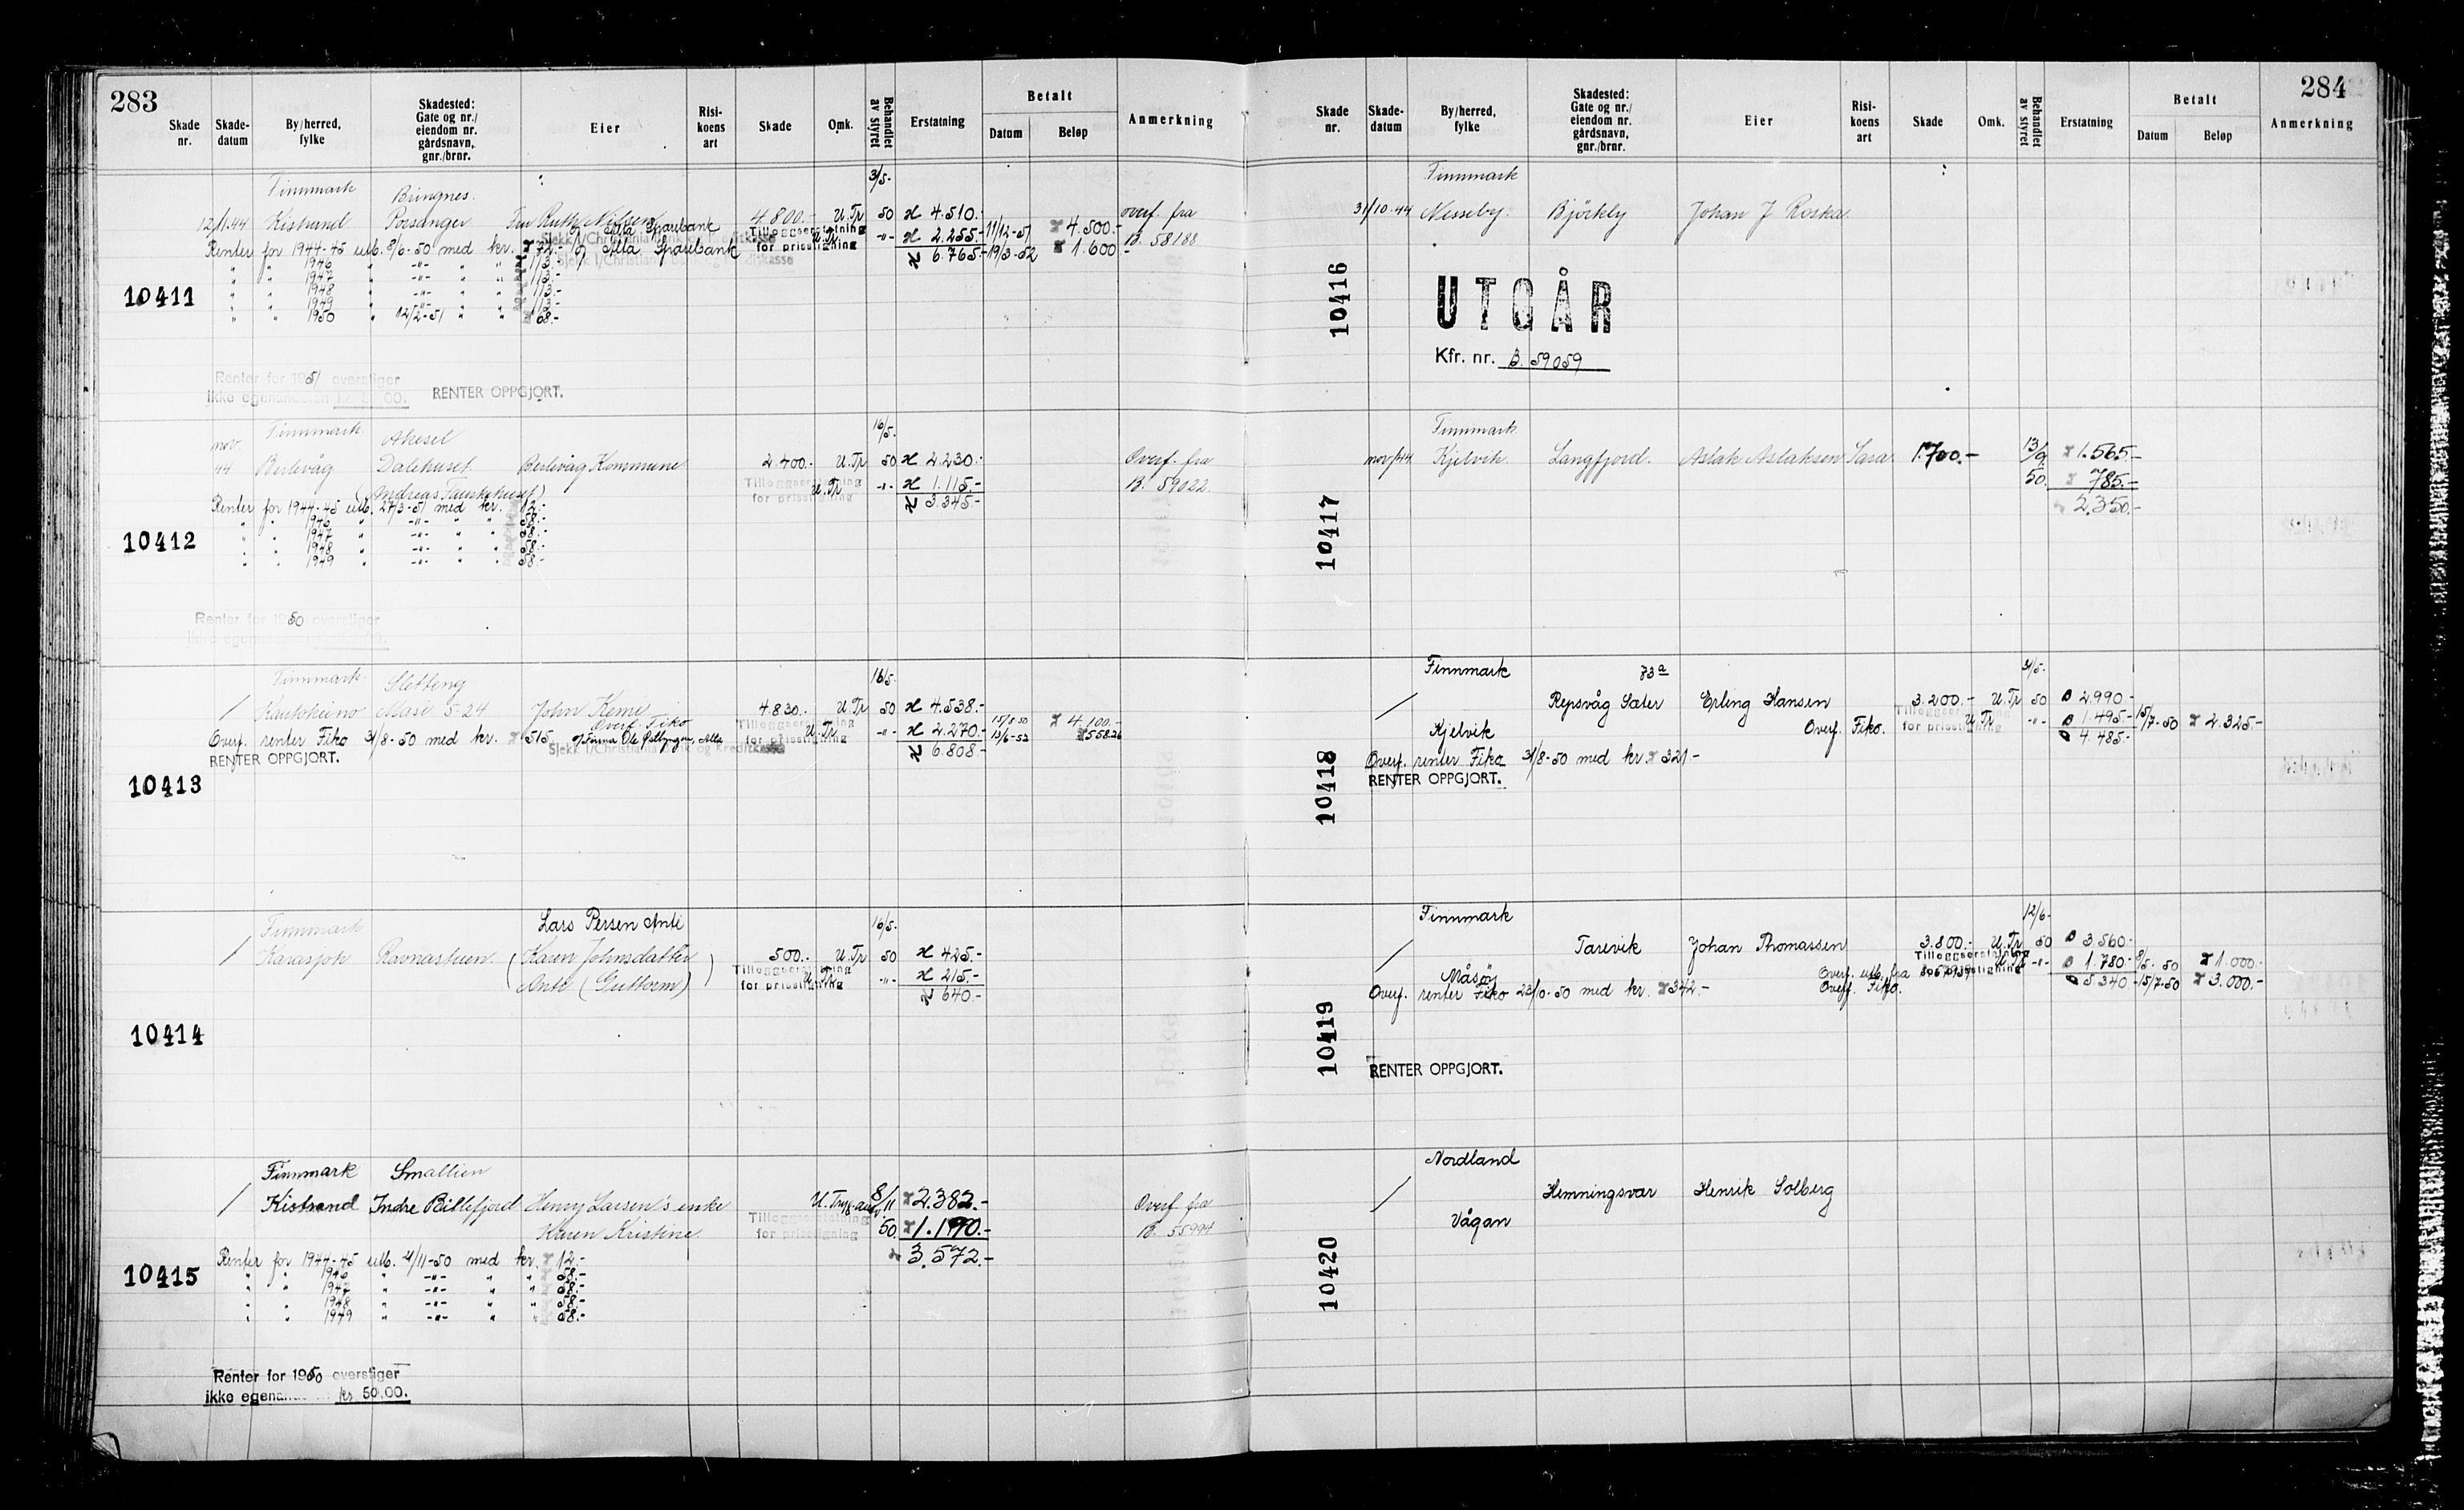 283
Skade nr. Skade-datum By/herred, fylke Skadested: Gate og nr./ eiendom nr. gårdsnavn, gnr./brnr. Eier Risi-koens art Skade Omk. Behandlet av styret Erstatning Betalt Datum Beløp Anmerkning
Finnmark Bringnes 3/5-
12/1.44 Kistrand Porsanger Fru Ruth Nilsen 4 800.- U.Tr 50 4.510.- overf. fra
Alta Sparebank Tilleggserstatning for prisstigning U.Tr. -"- 2.255.- 11/12-51 4.500.- B. 58188
Renter for 1944-45 utb. 8/6-50 med kr. 72.- Alta Sparebank 6.765.- 19/3-52 1.600.-
" " 1946 " -"- " " 113.-
" " 1947 " -"- " " 113.-
" " 1948 " -"- " " 113.-
" " 1949 " -"- " " 113.-
" " 1950 " 12/2-51 " " 68.-
10411
Renter for 1951 overstiger
ikke egenandelen 00. RENTER OPPGJORT.
Finnmark Aksel 16/5.
nov. 44 Berlevåg Dalehuset Berlevåg Kommune 2 400.- U.Tr 50 2.230.- Overf. fra
(Andreas huset) Tilleggserstatning for prisstigning U.Tr -"- 1.115.- B. 59022.
Renter for 1944-45 utb. 27/3-51 med kr. 12.- 3.345.-
" " 1946 " -"- " " 58.-
" " 1947 " -"- " " 58.-
" " 1948 " -"- " " 58.-
" " 1949 " -"- " " 58.-
10412
Renter for 1950 overstiger
ikke egenandelen
Finnmark Sletteng 16/5.
/ Kautokeino Masi 5-24 John Kemi 4.830.- U.Tr 50 4.538.-
Overf. Fiko Tilleggserstatning for prisstigning U.Tr. -"- 2.270.- 15/8-50 4.100.-
Overf. renter Fiko 3/8-50 med kr. 515 Firma Ole Alta 6.808.- 13/6-52 558.26
Sjekk I/Christiania Bank og Kreditkasse
RENTER OPPGJORT.
10413
Finnmark Lars Persen Anti 16/5.
/ Karasjok Ravnastuen. (Karen Johnsdatter 500.- U.Tr 50 425.-
Anti (Guttorm)) Tilleggserstatning for prisstigning U.Tr. -"- 215.-
640.-
10414
Finnmark Smallien
/ Kistrand Indre Billefjord Henry Larsen's enke 8/11 2.382.- Overf fra
Karen Kristine Tilleggserstatning for prisstigning 50. 1.190.- B. 55994
3.572.-
Renter for 1944-45 utb. 4/11-50 med kr. 12.-
" " 1946 " -"- " " 58.-
" " 1947 " -"- " " 58.-
" " 1948 " -"- " " 58.-
" " 1949 " -"- " " 58.-
10415
Renter for 1950 overstiger
ikke egenandelen kr 50.00.
284
Skade nr. Skade-datum By/herred, fylke Skadested: Gate og nr./ eiendom nr. gårdsnavn, gnr./brnr. Eier Risi-koens art Skade Omk. Behandlet av styret Erstatning Betalt Datum Beløp Anmerkning
Finnmark
31/10-44 Nesseby. Björkly Johan J Roska.
10416
UTGÅR
Kfr. nr. B. 59059
Finnmark
nov/44 Kjelvik. Langfjord. Aslak Aslaksen Sara 1.700.- 13/9 1.565.-
50. 785.-
2.350.-
10417
Finnmark 73a 4/5-
/ Repsvåg Sæter Erling Hansen 3.200.- U.Tr 50 2990.-
Kjelvik Overf. Fiko. Tilleggserstatning for prisstigning U.Tr -"- 1.495.- 15/7-50 2.325-
4.485.-
Overf. renter Fiko 3/8-50 med kr. 321-
RENTER OPPGJORT.
10418
Finnmark 12/6-
/ Tarevik Johan Thomassen 3.800.- U.Tr 50 3.560.-
Måsøy Overf. utb. fra Tilleggserstatning for prisstigning U.Tr -"- 1.780.- 9/5-50 1.000.-
Overf. renter Fiko 23/10-50 med kr. 342.- Overf. Fiko. 5.340.- 15/7-50 3.000.-
10419
RENTER OPPGJORT.
Nordland
/ Hemningsvær Henrik Solberg
Vågan
10420